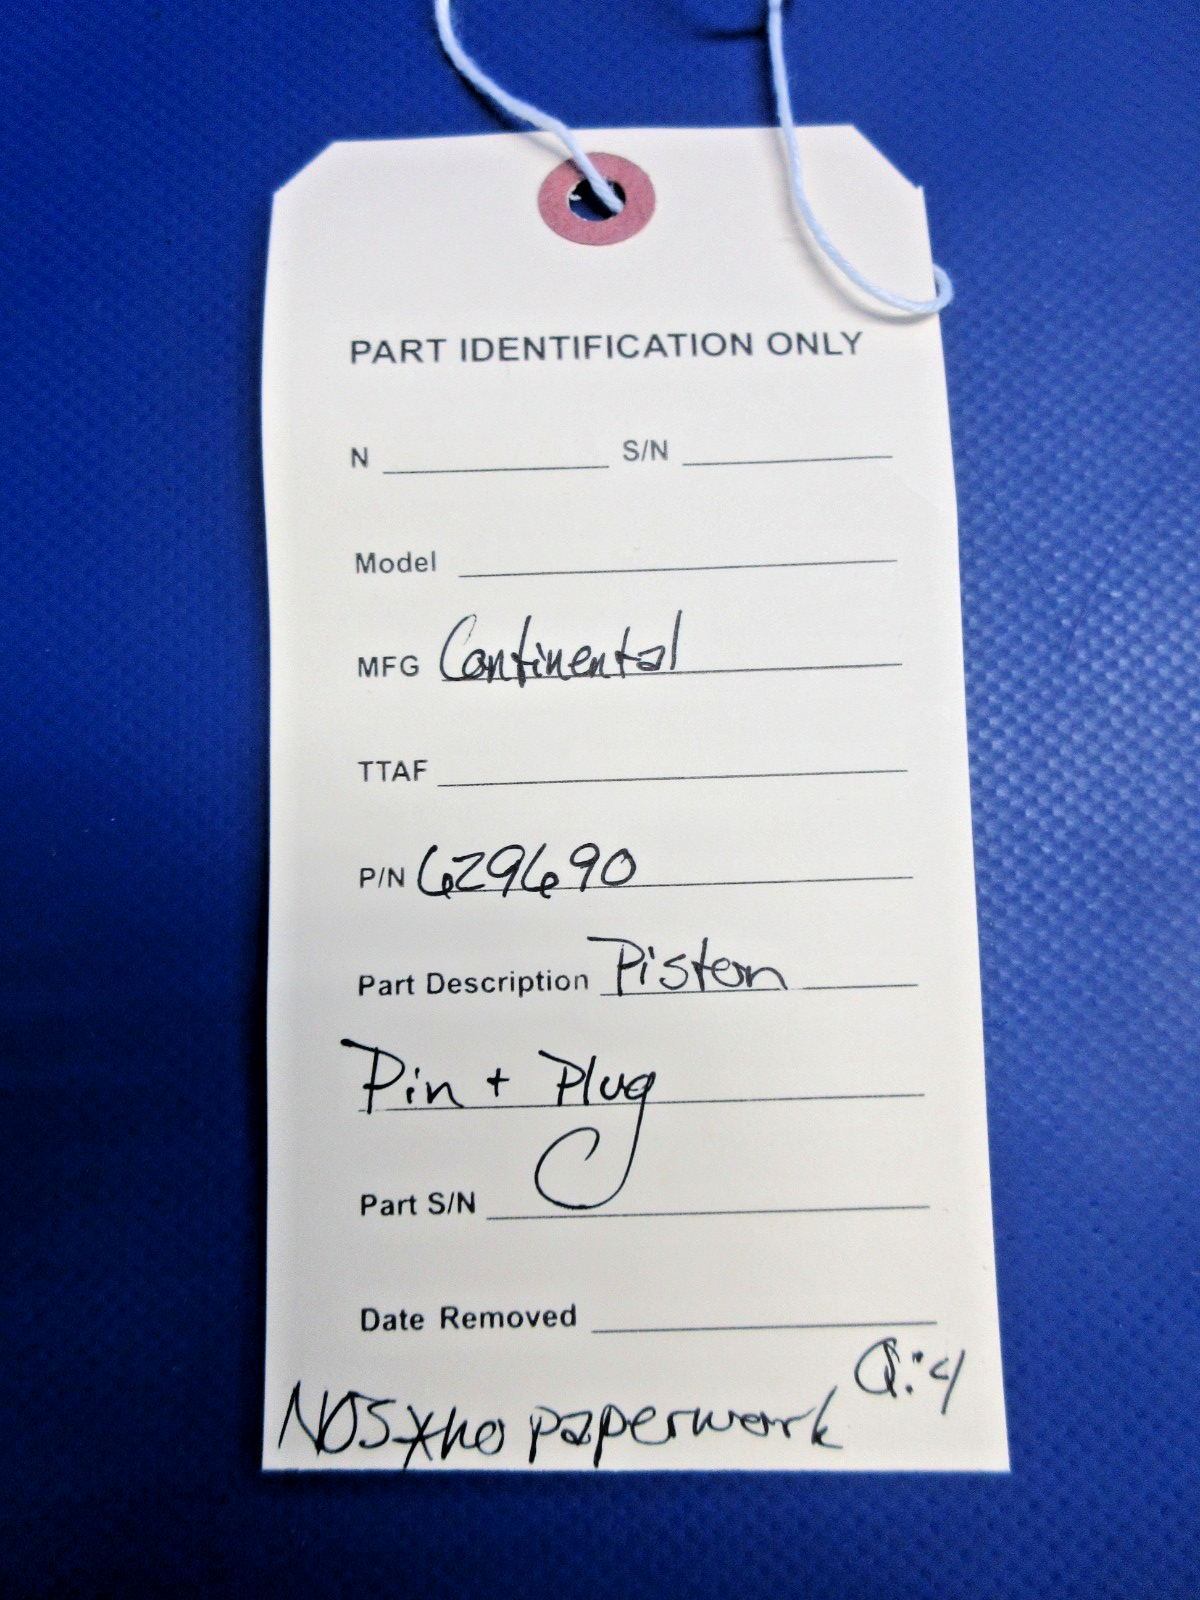 PART IDENTIFICATION ONLY
N S/N
Model
MFG Continental
TTAF
P/N 629690
Part Description Piston
Pin + Plug
Part S/N
Date Removed
Q:4
NOS*no paperwork